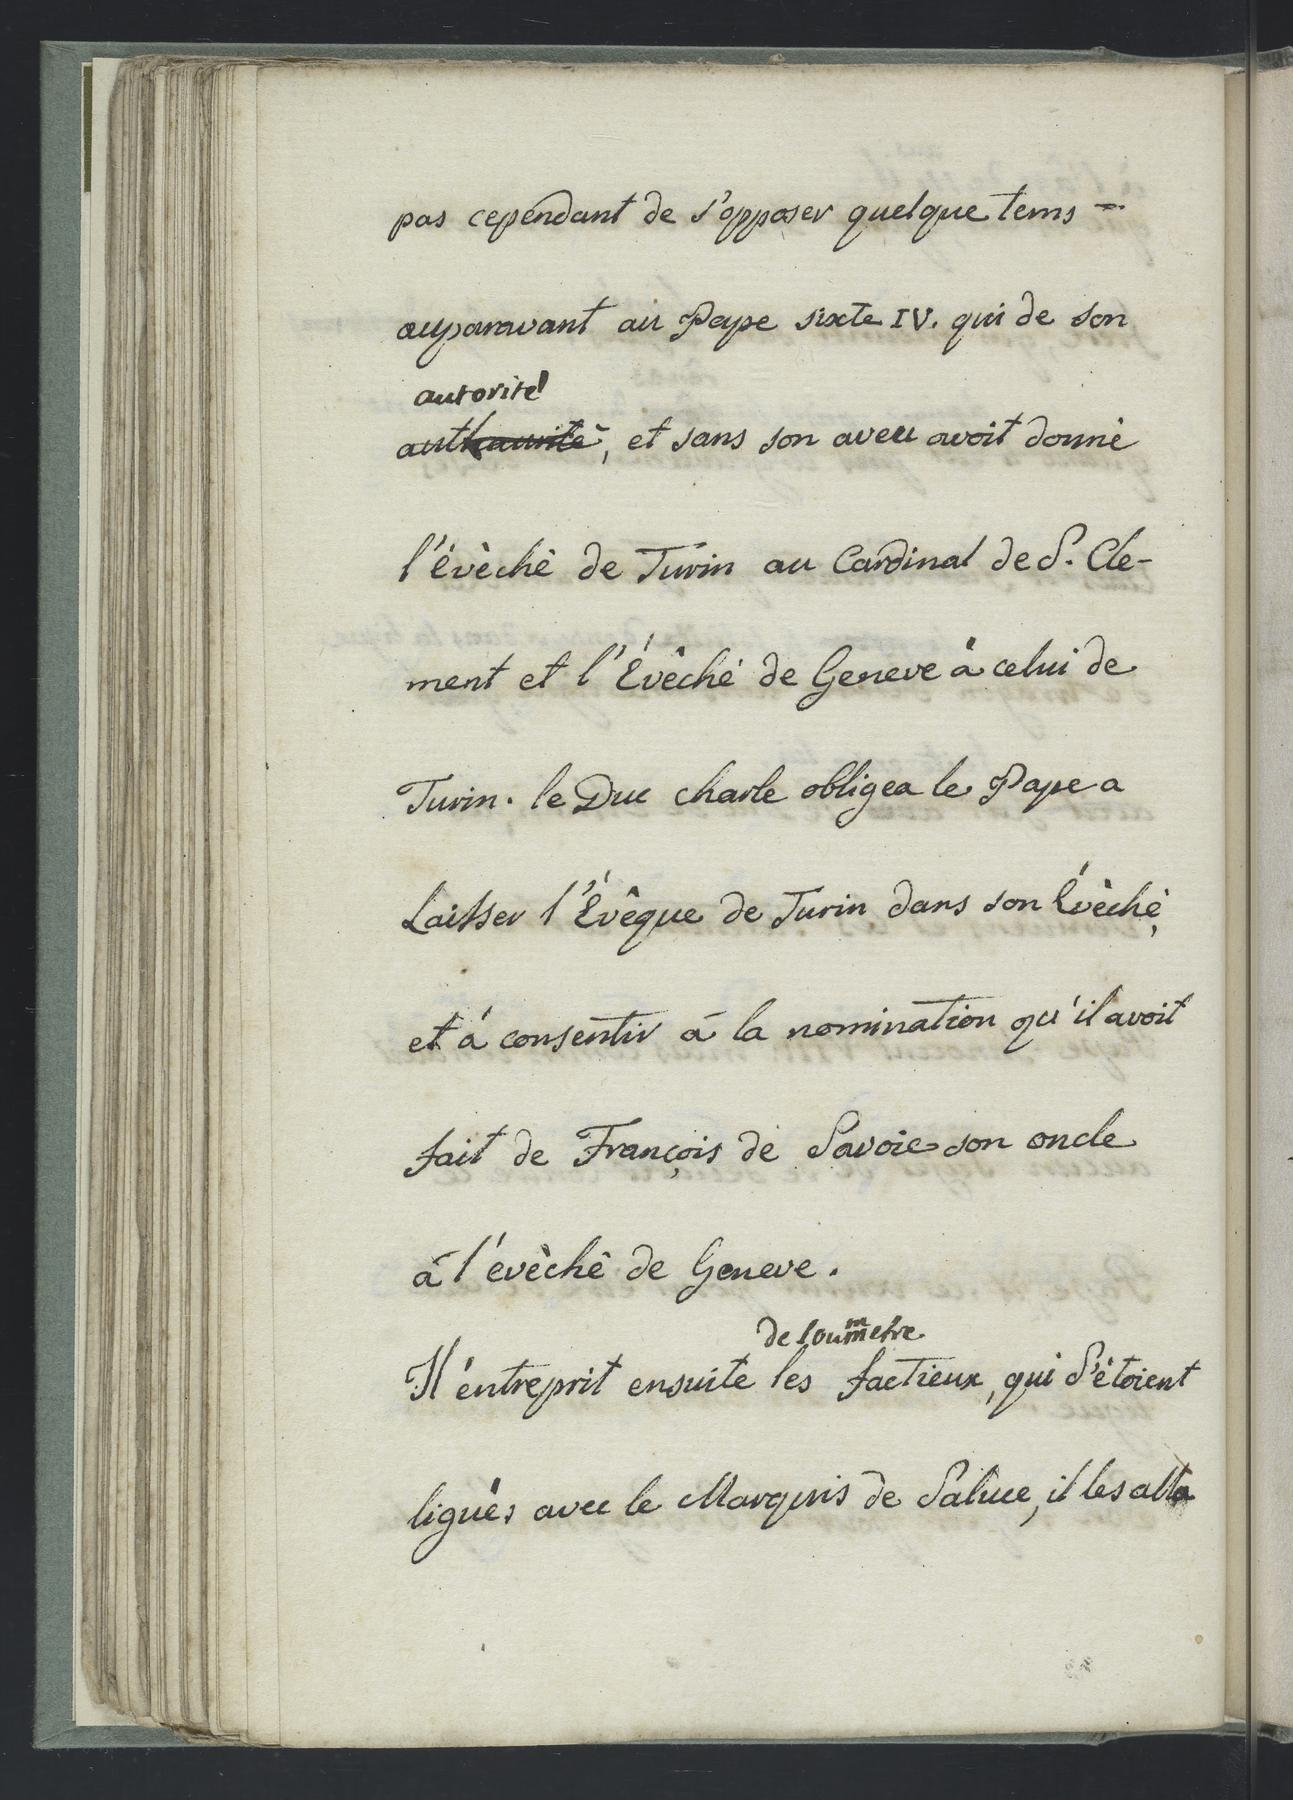 pas cependant de s'opposer quelque tems =
auparavant au Pape sixte IV. qui de son
autorité
, et sans son aveu avoit donné
l'évèché de Turin au Cardinal de S. Cle-
ment et l'Évêché de Geneve à celui de
Turin. le Duc charle obligea le Pape a
Laisser l'Évêque de Turin dans son Évèché,
et à consentir à la nomination qu'il avoit
fait de François de Savoie son oncle
à l'évèché de Geneve.
de soummetre
Il entreprit ensuite les factieux, qui S'étoient
ligués avec le Marquis de Saluce, il les atta